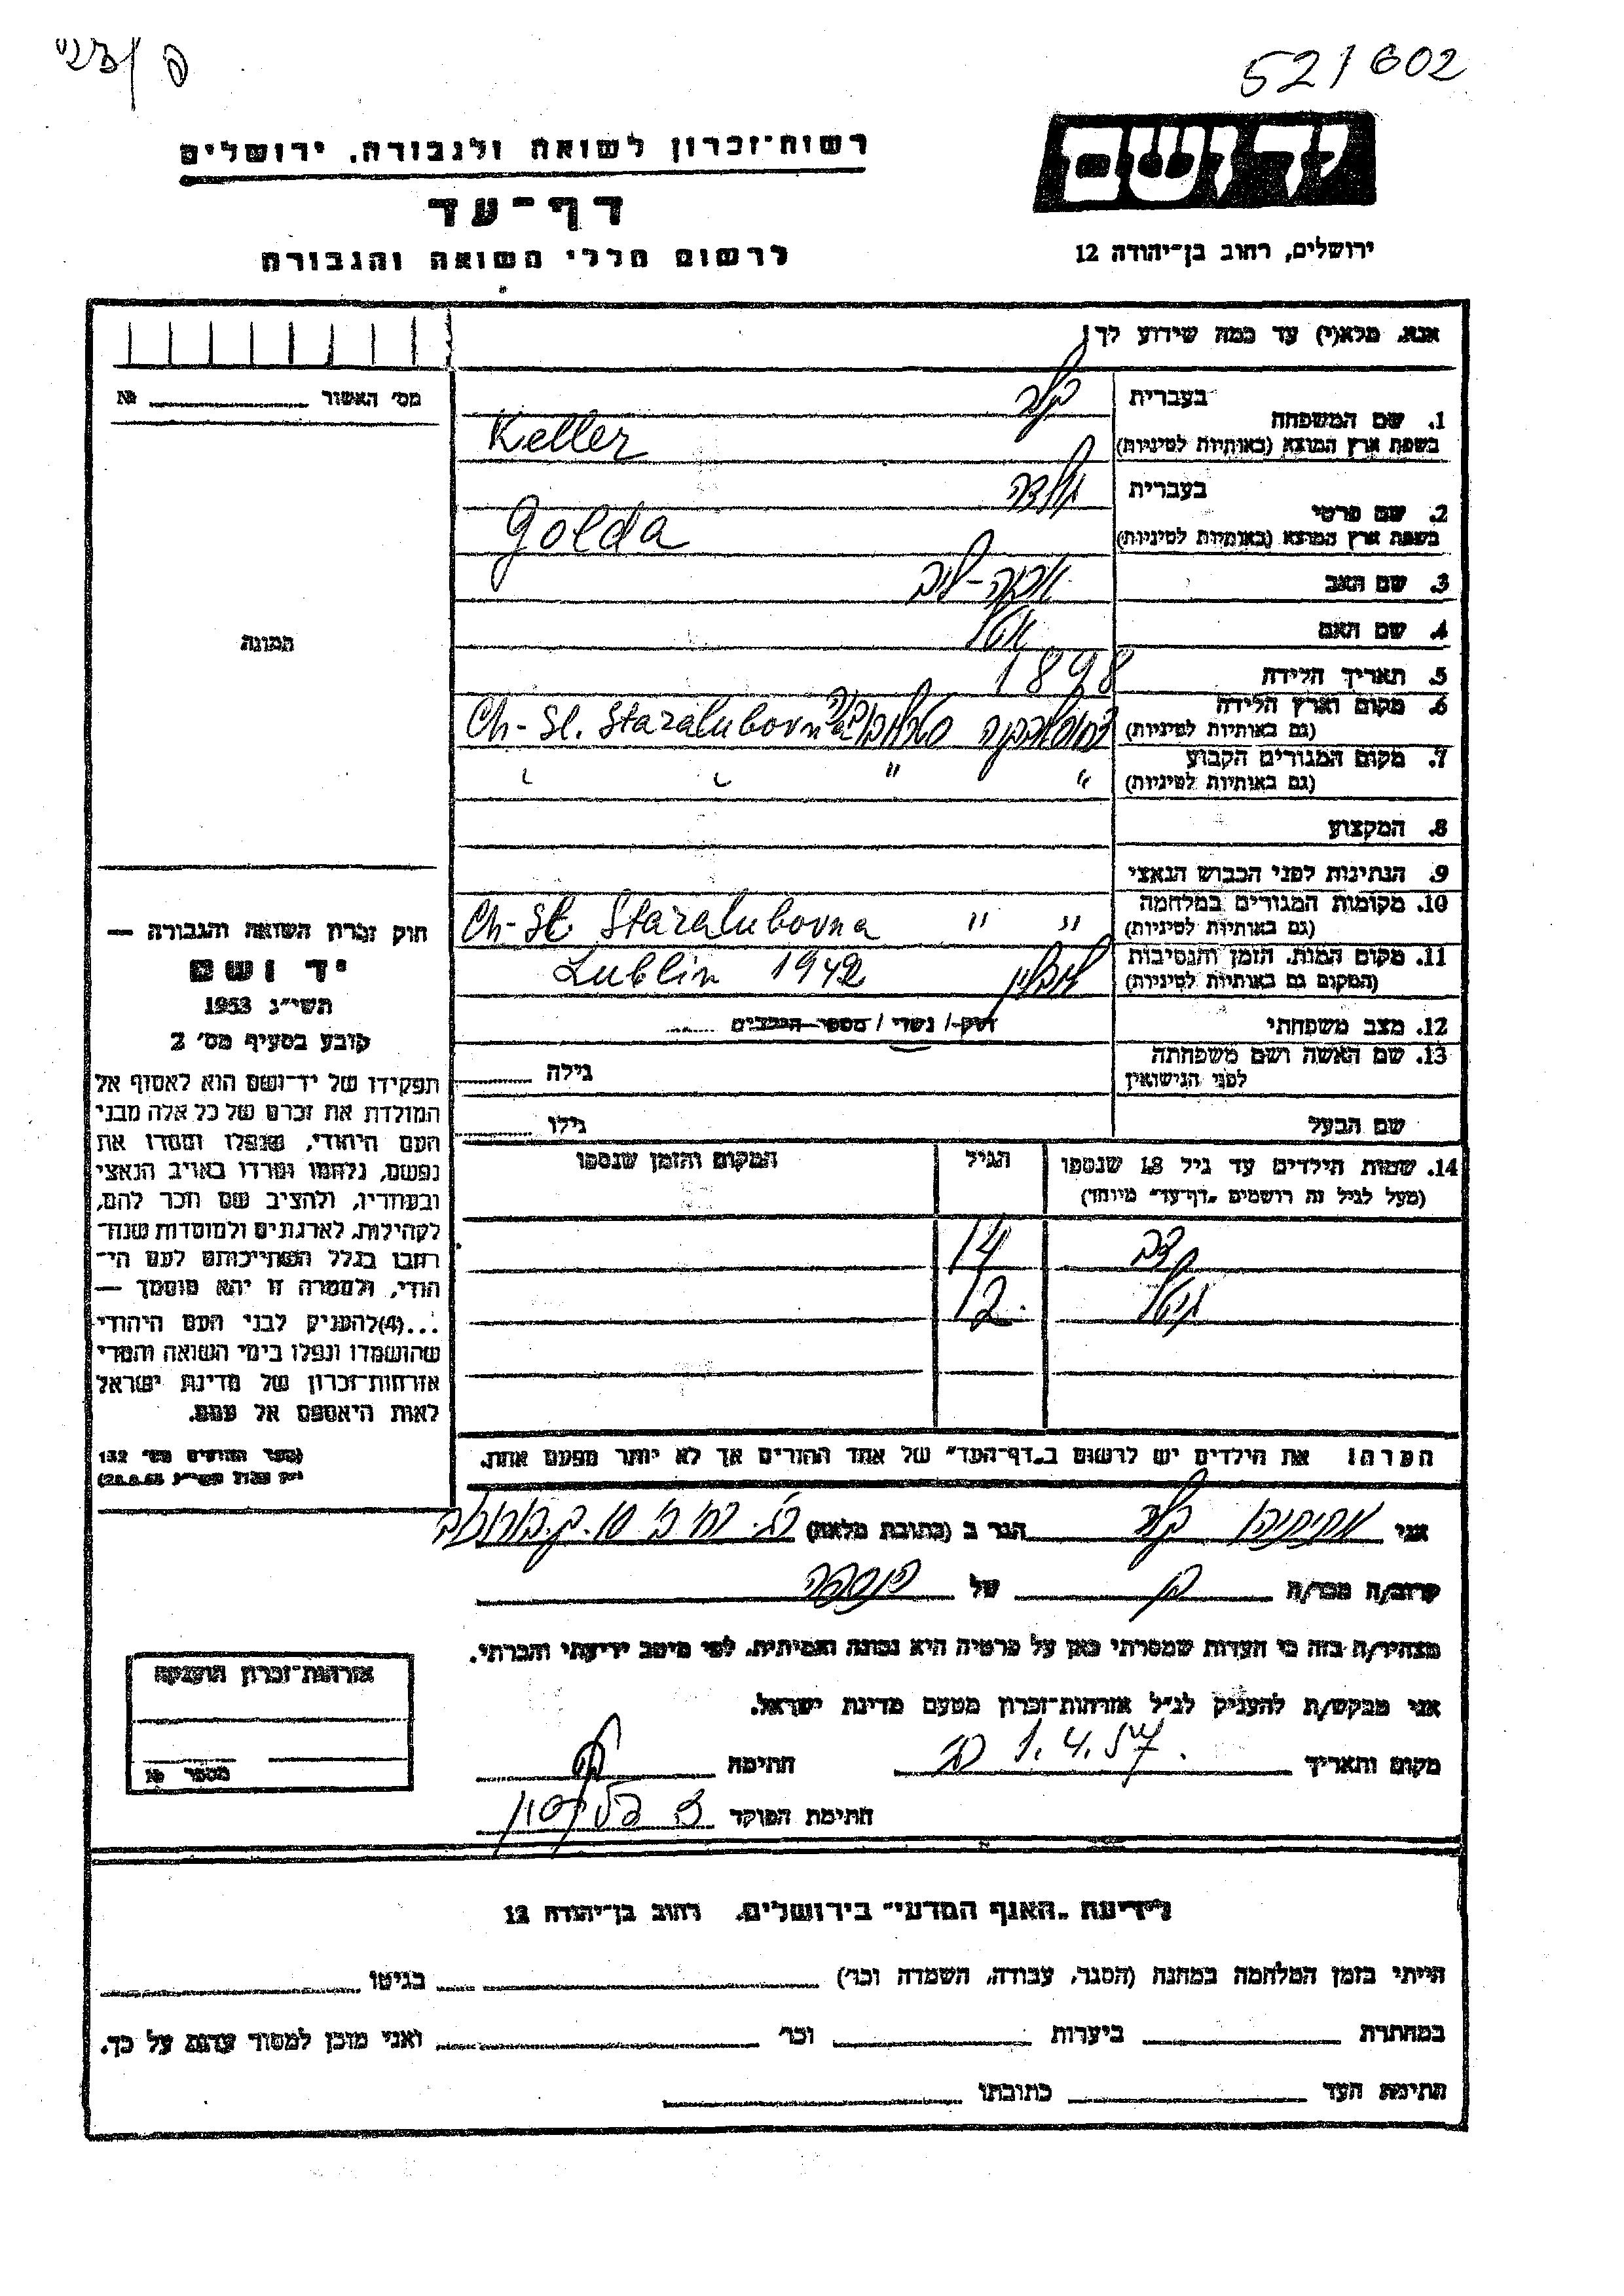 521602
יד ושם
ירושלים, רחוב בן־יהודה 12
רשות־זכרון לשואה ולגבורה, ירושלים
דף־עד
לרשום חללי השואה והגבורה
אנא, מלא(י) עד כמה שידוע לך!
מס׳ האשור № 
1. שם המשפחה בעברית קלר
בשפת ארץ המוצא (באותיות לטיניות) Keller
2. שם פרטי בעברית גולדה
בשפת ארץ המוצא (באותיות לטיניות) Golda
3. שם האב אריה-ליב
4. שם האם
5. תאריך הלידה 1898
6. מקום וארץ הלידה (גם באותיות לטיניות) צ׳כוסלובקיה Ch-Sl. Staralubovna
7. מקום המגורים הקבוע (גם באותיות לטיניות) " " " "
8. המקצוע
9. הנתינות לפני הכבוש הנאצי
10. מקומות המגורים במלחמה (גם באותיות לטיניות) " " Ch-Sl Staralubovna
11. מקום המות, הזמן והנסיבות (המקום גם באותיות לטיניות) לובלין Lublin 1942
12. מצב משפחתי רווק / נשוי / מספר הילדים
13. שם האשה ושם משפחתה לפני הנישואין גילה
שם הבעל גילו
14. שמות הילדים עד גיל 18 שנספו הגיל המקום והזמן שנספו
(מעל לגיל זה רושמים „דף־עד״ מיוחד)
14
12
הערה: את הילדים יש לרשום ב„דף־העד״ של אחד ההורים אך לא יותר מפעם אחת.
התמונה
חוק זכרון השואה והגבורה —
יד ושם
תשי״ג 1953
קובע בסעיף מס׳ 2
תפקידו של יד־ושם הוא לאסוף אל
המולדת את זכרם של כל אלה מבני
העם היהודי, שנפלו ומסרו את
נפשם, נלחמו ומרדו באויב הנאצי
ובעוזריו, ולהציב שם וזכר להם,
לקהילות, לארגונים ולמוסדות שנח־
רבו בגלל השתייכותם לעם הי־
הודי, ולמטרה זו יהא מוסמך —
...(4) להעניק לבני העם היהודי
שהושמדו ונפלו בימי השואה והמרי
אזרחות־זכרון של מדינת ישראל
לאות היאספם אל עמם.
(ספר החוקים מס׳ 132
אני מתתיהו קלר הגר ב (כתובת מלאה)
קרוב/ה מכר/ה בן של
מצהיר/ה בזה כי העדות שמסרתי כאן על פרטיה היא נכונה ואמיתית, לפי מיטב ידיעתי והכרתי.
אני מבקש/ת להעניק לנ״ל אזרחות־זכרון מטעם מדינת ישראל.
מקום ותאריך 1.4.57 חתימה
חתימת הפוקד
אזרחות־זכרון הוענקה
מספר №
לידיעת „האגף המדעי״ בירושלים, רחוב בן־יהודה 12
הייתי בזמן המלחמה במחנה (הסגר, עבודה, השמדה וכו׳) בגיטו
במחתרת ביערות וכו׳ ואני מוכן למסור עדות על כך.
חתימת העד כתובתו